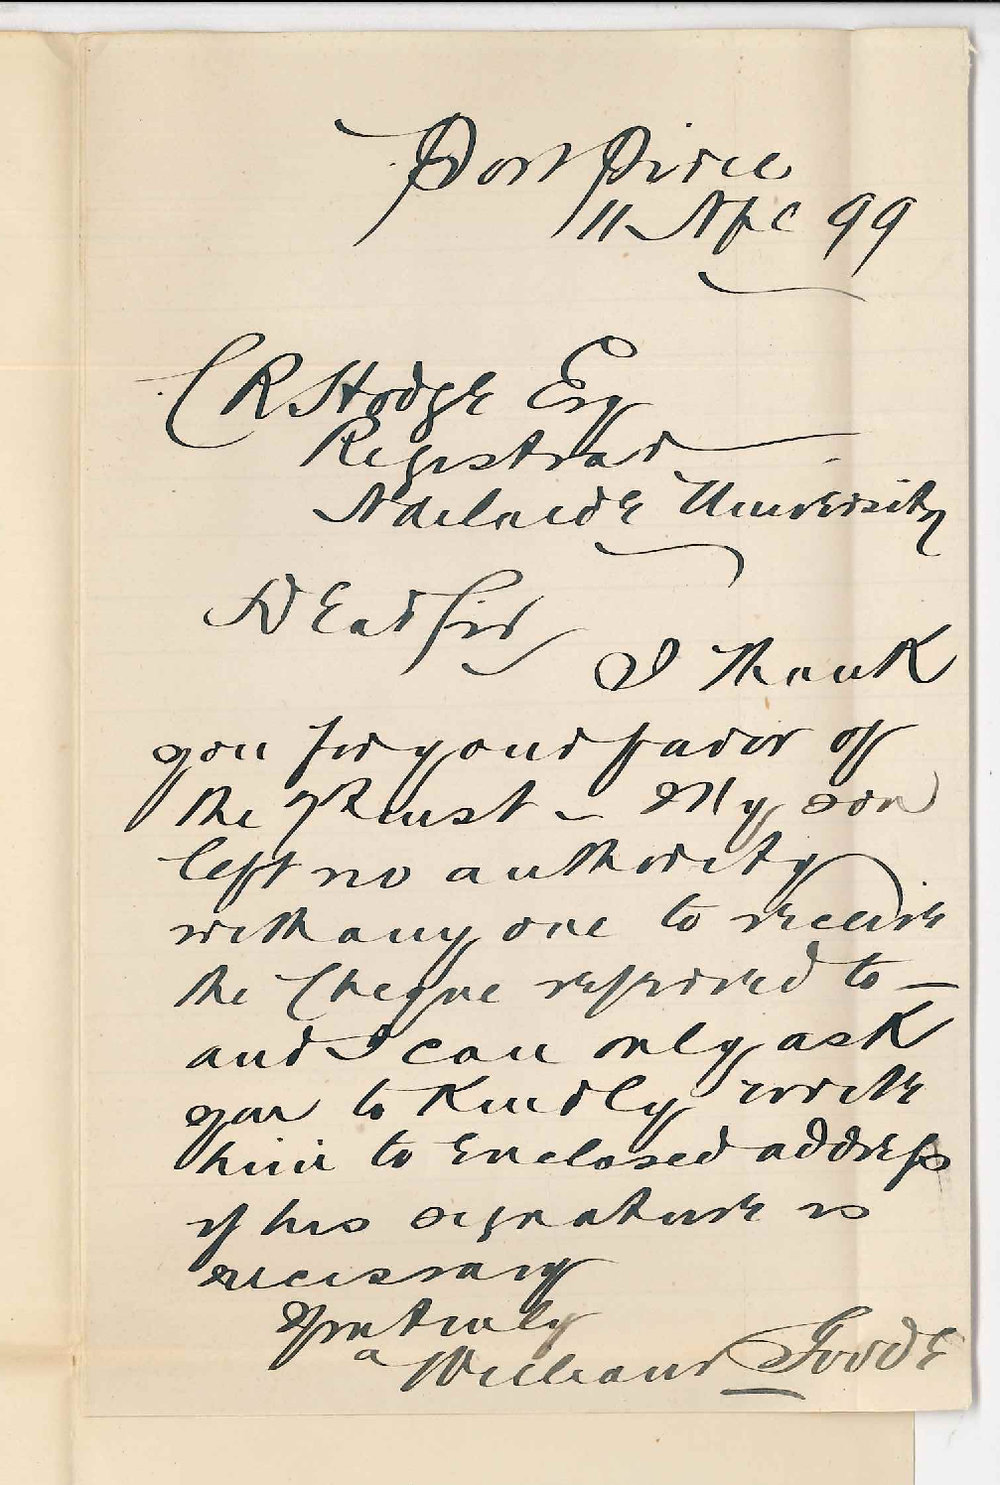 Port Pirie
11 Apl 99
C R Hodge Esq
Registrar
Adelaide University
Dear Sir
I thank
you for your favor of
the 7th Inst - My son
left no authority
with any one to receive
the Cheque referred to -
and I can only ask
you to Kindly write
him to Enclosed address
if his signature is
necessary
Yrs truly
William Goode